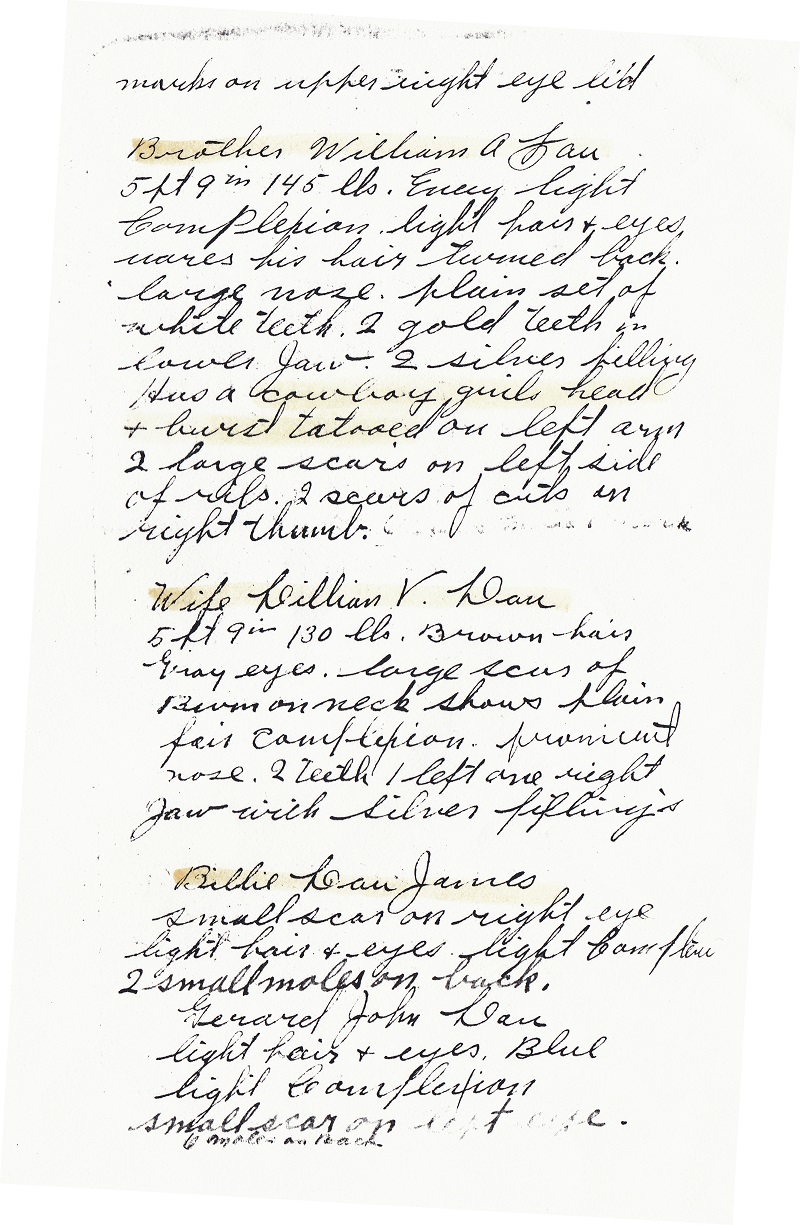 marks on upper right eye lid
Brother William A Dau
5 ft 9 in 145 lbs. light
Complexion. light hair & eyes
wares his hair turned back.
large nose. plain set of
white teeth. 2 gold teeth in
lower Jaw. 2 silver filling
Has a cowboy girls head
& burst tatooed on left arm
2 large scars on left side
of ribs. 2 scars of cuts on
right thumb.
Wife Lillian V. Dau
5 ft 9 in 130 lbs. Brown hair
Gray eyes. large scar of
Burn on neck shows plain
fair complexion. prominent
nose. 2 teeth 1 left one right
Jaw with silver filling's
Billie Dau James
small scar on right eye
light hair & eyes light
2 small moles on back.
Gerard John Dau
light hair & eyes. Blue
light Complexion
small scar on left eye.
6 moles on Back